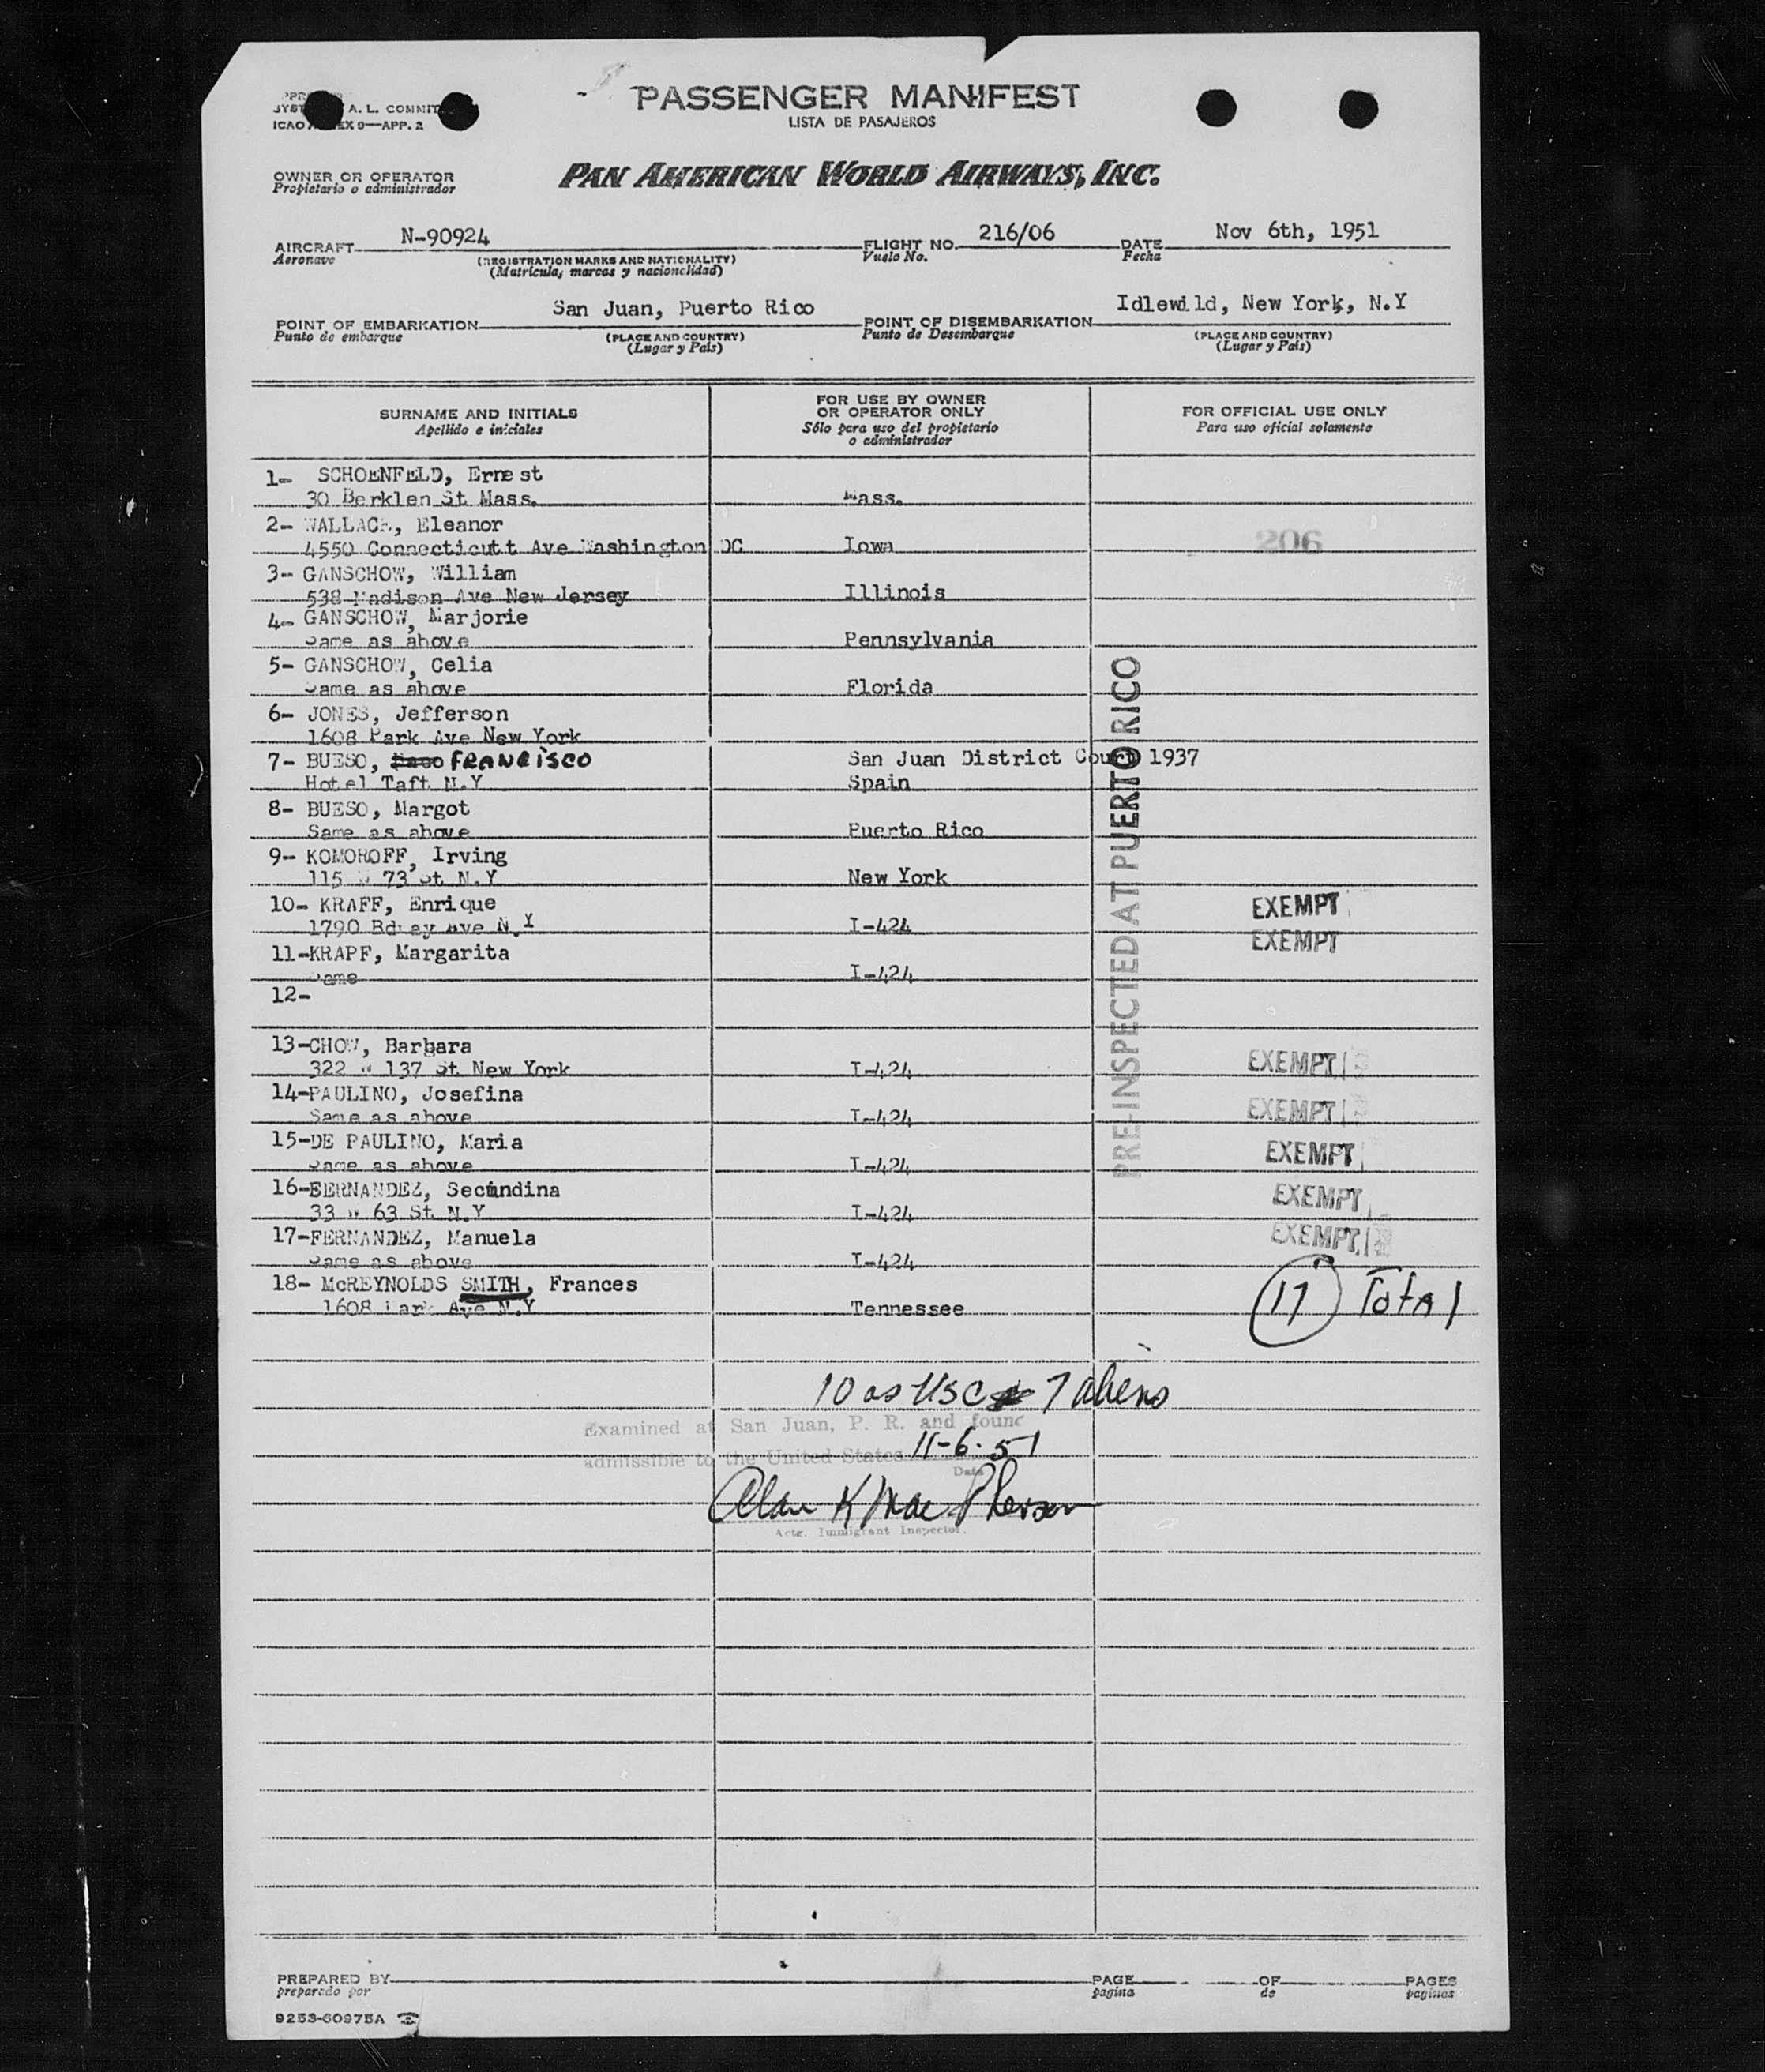 A. L. COMMIT
PASSENGER MANIFEST
LISTA DE PASAJEROS
ICAO 9—APP. 2
OWNER OR OPERATOR
Propietario o administrador
PAN AMERICAN WORLD AIRWAYS, INC.
AIRCRAFT N-90924 FLIGHT NO. 216/06 DATE Nov 6th, 1951
Aeronave (REGISTRATION MARKS AND NATIONALITY) Vuelo No. Fecha
(Matrícula, marcas y nacionalidad)
POINT OF EMBARKATION San Juan, Puerto Rico POINT OF DISEMBARKATION Idlewild, New York, N.Y
Punto de embarque (PLACE AND COUNTRY) Punto de Desembarque (PLACE AND COUNTRY)
(Lugar y País) (Lugar y País)
SURNAME AND INITIALS
Apellido e iniciales
FOR USE BY OWNER
OR OPERATOR ONLY
Sólo para uso del propietario
o administrador
FOR OFFICIAL USE ONLY
Para uso oficial solamente
1- SCHOENFELD, Ernest
30 Berklen St Mass. Mass.
2- WALLACE, Eleanor
4550 Connecticutt Ave Washington DC Iowa 206
3- GANSCHOW, William
538 Madison Ave New Jersey Illinois
4- GANSCHOW, Marjorie
Same as above Pennsylvania
5- GANSCHOW, Celia
Same as above Florida
6- JONES, Jefferson
1608 Park Ave New York
7- BUESO, FRANCISCO San Juan District Court 1937
Hotel Taft N.Y Spain
8- BUESO, Margot
Same as above Puerto Rico
9- KOMOROFF, Irving
115 W 73 St N.Y New York
10- KRAFF, Enrique EXEMPT
1790 Ave N.Y I-424
11-KRAPF, Margarita EXEMPT
Same I-424
12-
13-CHOW, Barbara
322 W 137 St New York I-424 EXEMPT
14-PAULINO, Josefina
Same as above I-424 EXEMPT
15-DE PAULINO, Maria
Same as above I-424 EXEMPT
16-BERNANDEZ, Secundina
33 W 63 St N.Y I-424 EXEMPT
17-FERNANDEZ, Manuela
Same as above I-424 EXEMPT
18- McREYNOLDS SMITH, Frances
1608 Park Ave N.Y Tennessee 17 Total
PRE-INSPECTED AT PUERTO RICO
10 as USC 7 aliens
Examined at San Juan, P. R. and found
admissible to the United States 11-6-51
Date
Alan K MacPherson
Actg. Immigrant Inspector.
PREPARED BY PAGE OF PAGES
preparado por pagina de paginas
9253-60975A